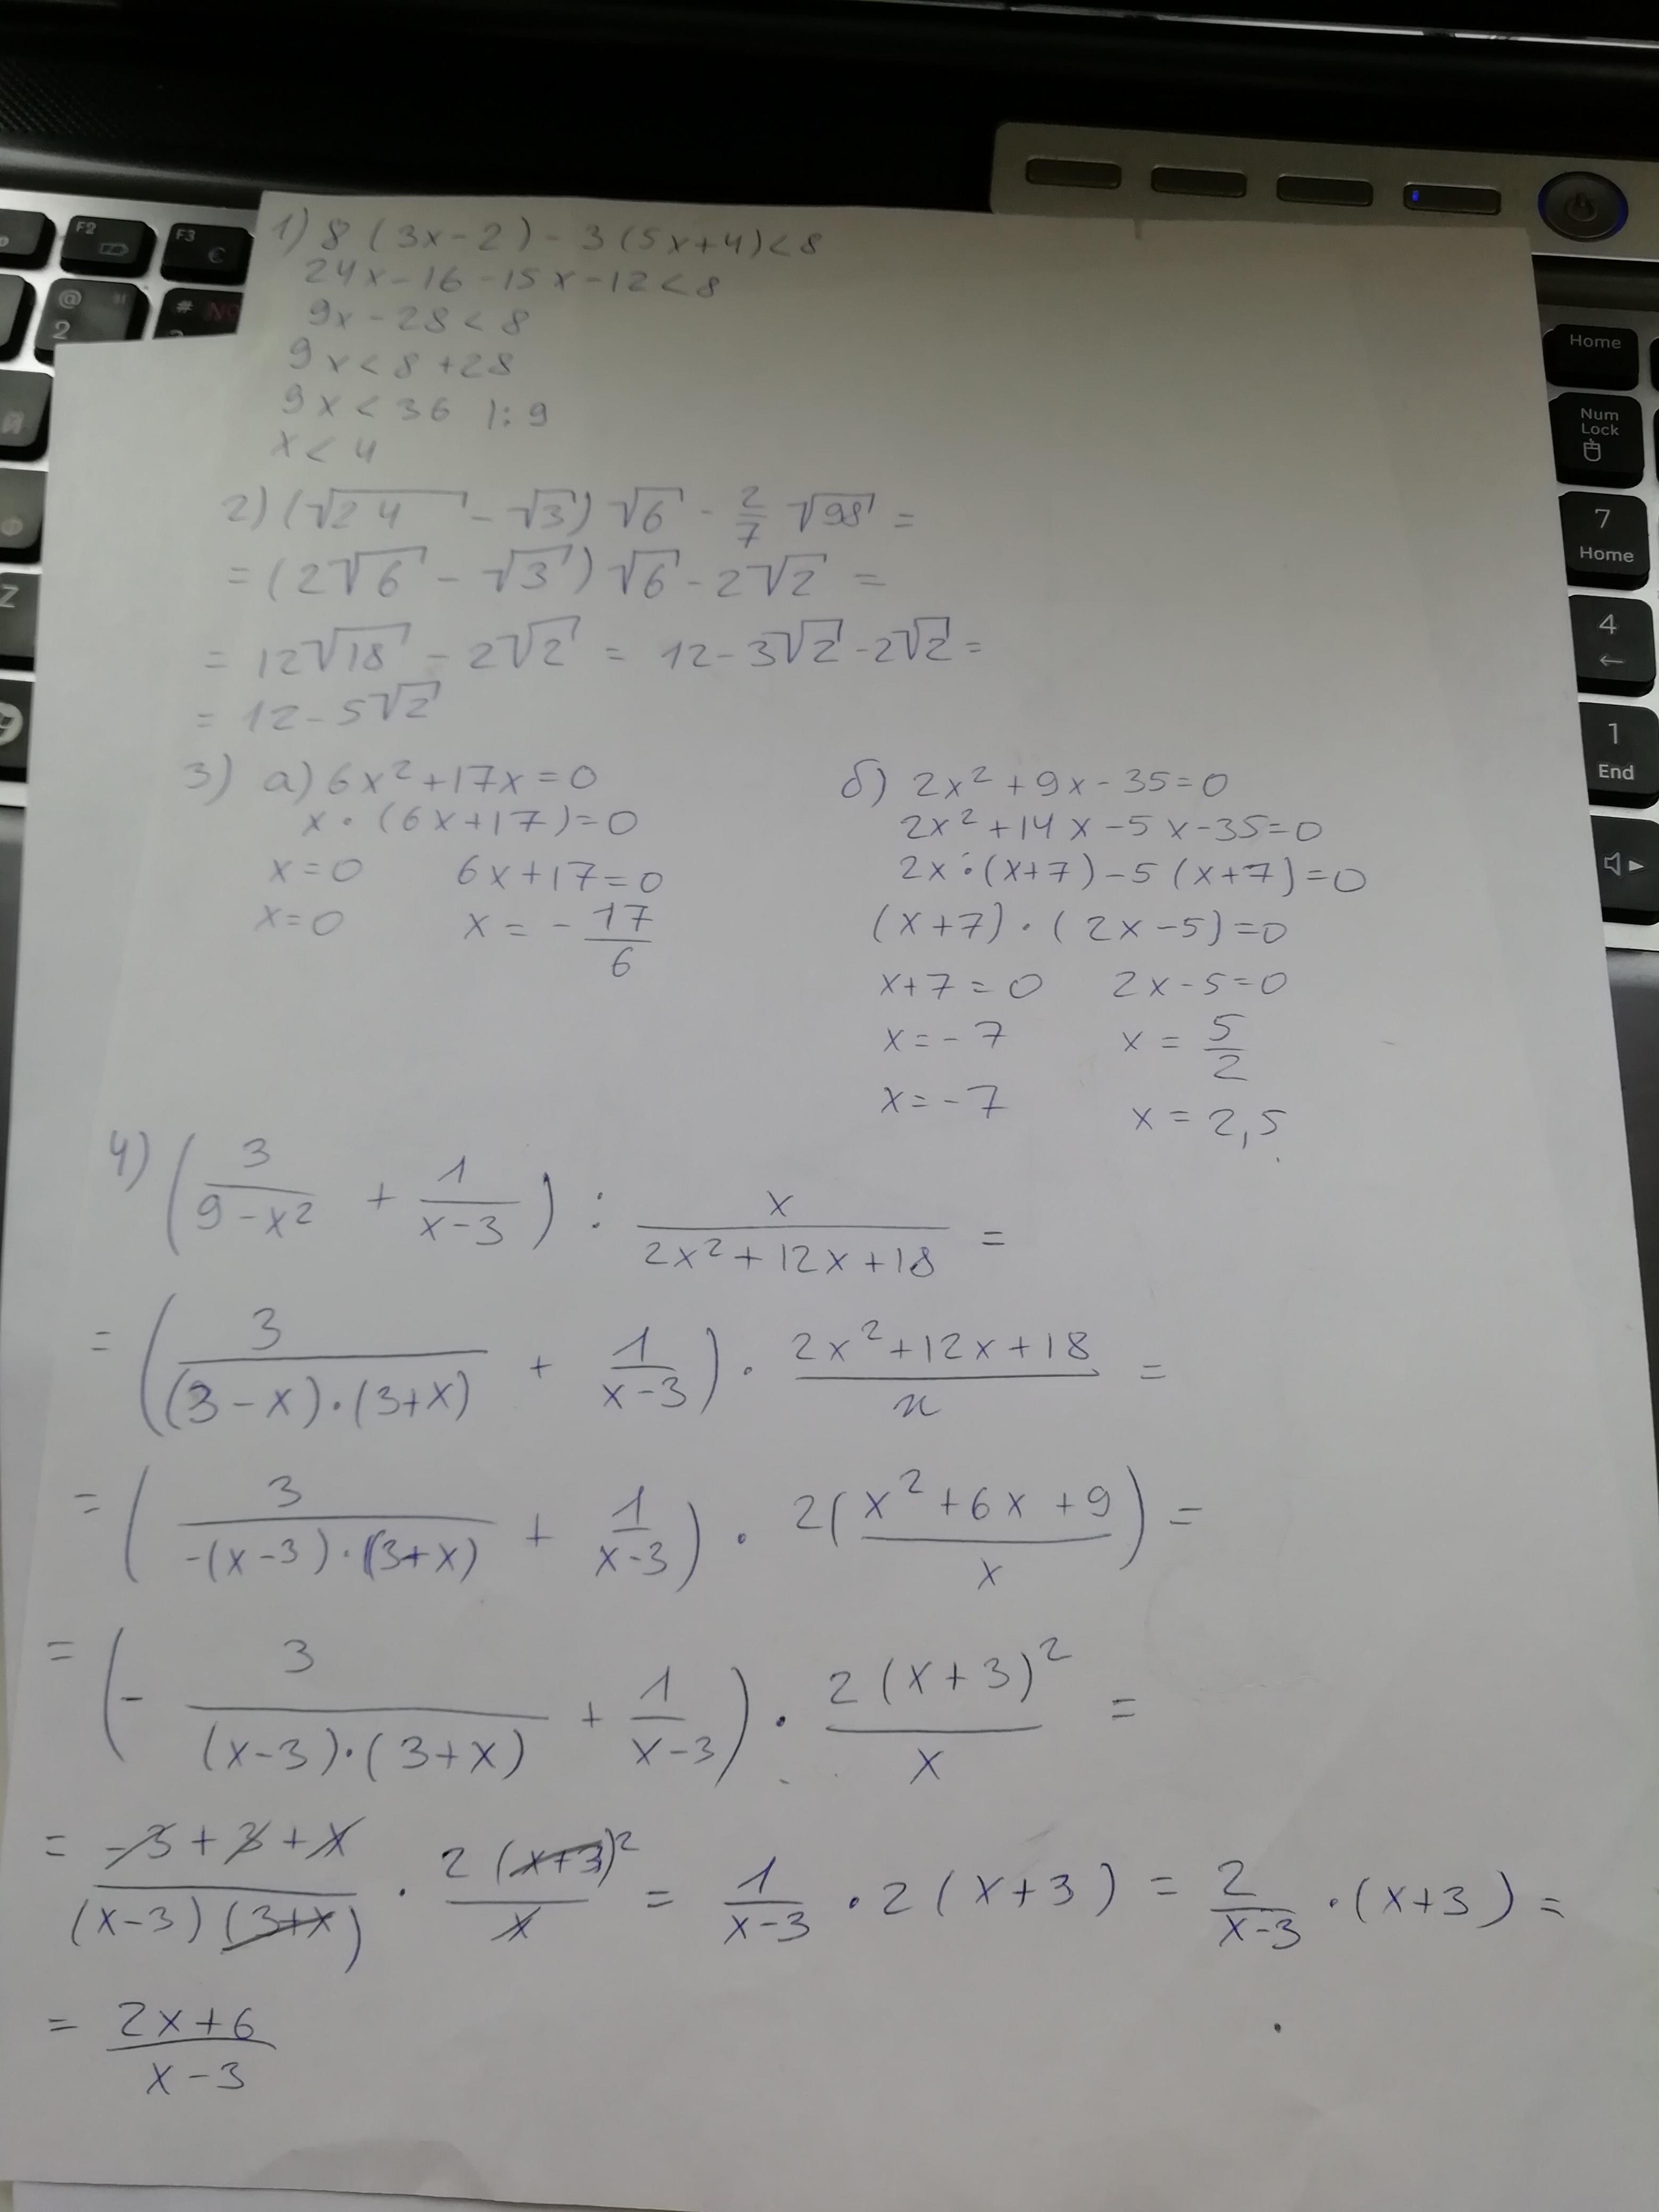 F2
F3
€
@
2
#
№
Й
Ф
Z
Home
Num
Lock
7
Home
4
←
1
End
1) 8 (3x-2) - 3(5x+4)<8
24x-16-15x-12<8
9x-28<8
9x<8+28
9x<36 |:9
x<4
2) (√24 - √3) √6 - 2/7 √98 =
= (2√6 - √3) √6 - 2√2 =
= 12√18 - 2√2 = 12-3√2-2√2 =
= 12-5√2
3) а) 6x²+17x=0
x·(6x+17)=0
x=0 6x+17=0
x=0 x = - 17/6
б) 2x²+9x-35=0
2x²+14x-5x-35=0
2x·(x+7)-5(x+7)=0
(x+7)·(2x-5)=0
x+7=0 2x-5=0
x=-7 x = 5/2
x=-7 x=2,5
4) (3/(9-x²) + 1/(x-3)) : x/(2x²+12x+18) =
= (3/((3-x)·(3+x)) + 1/(x-3)) · (2x²+12x+18)/x =
= (3/(-(x-3)·(3+x)) + 1/(x-3)) · 2((x²+6x+9)/x) =
= (- 3/((x-3)·(3+x)) + 1/(x-3)) · 2(x+3)²/x =
= (-3+3+x)/((x-3)(3+x)) · 2(x+3)²/x = 1/(x-3) · 2(x+3) = 2/(x-3) · (x+3) =
= (2x+6)/(x-3)